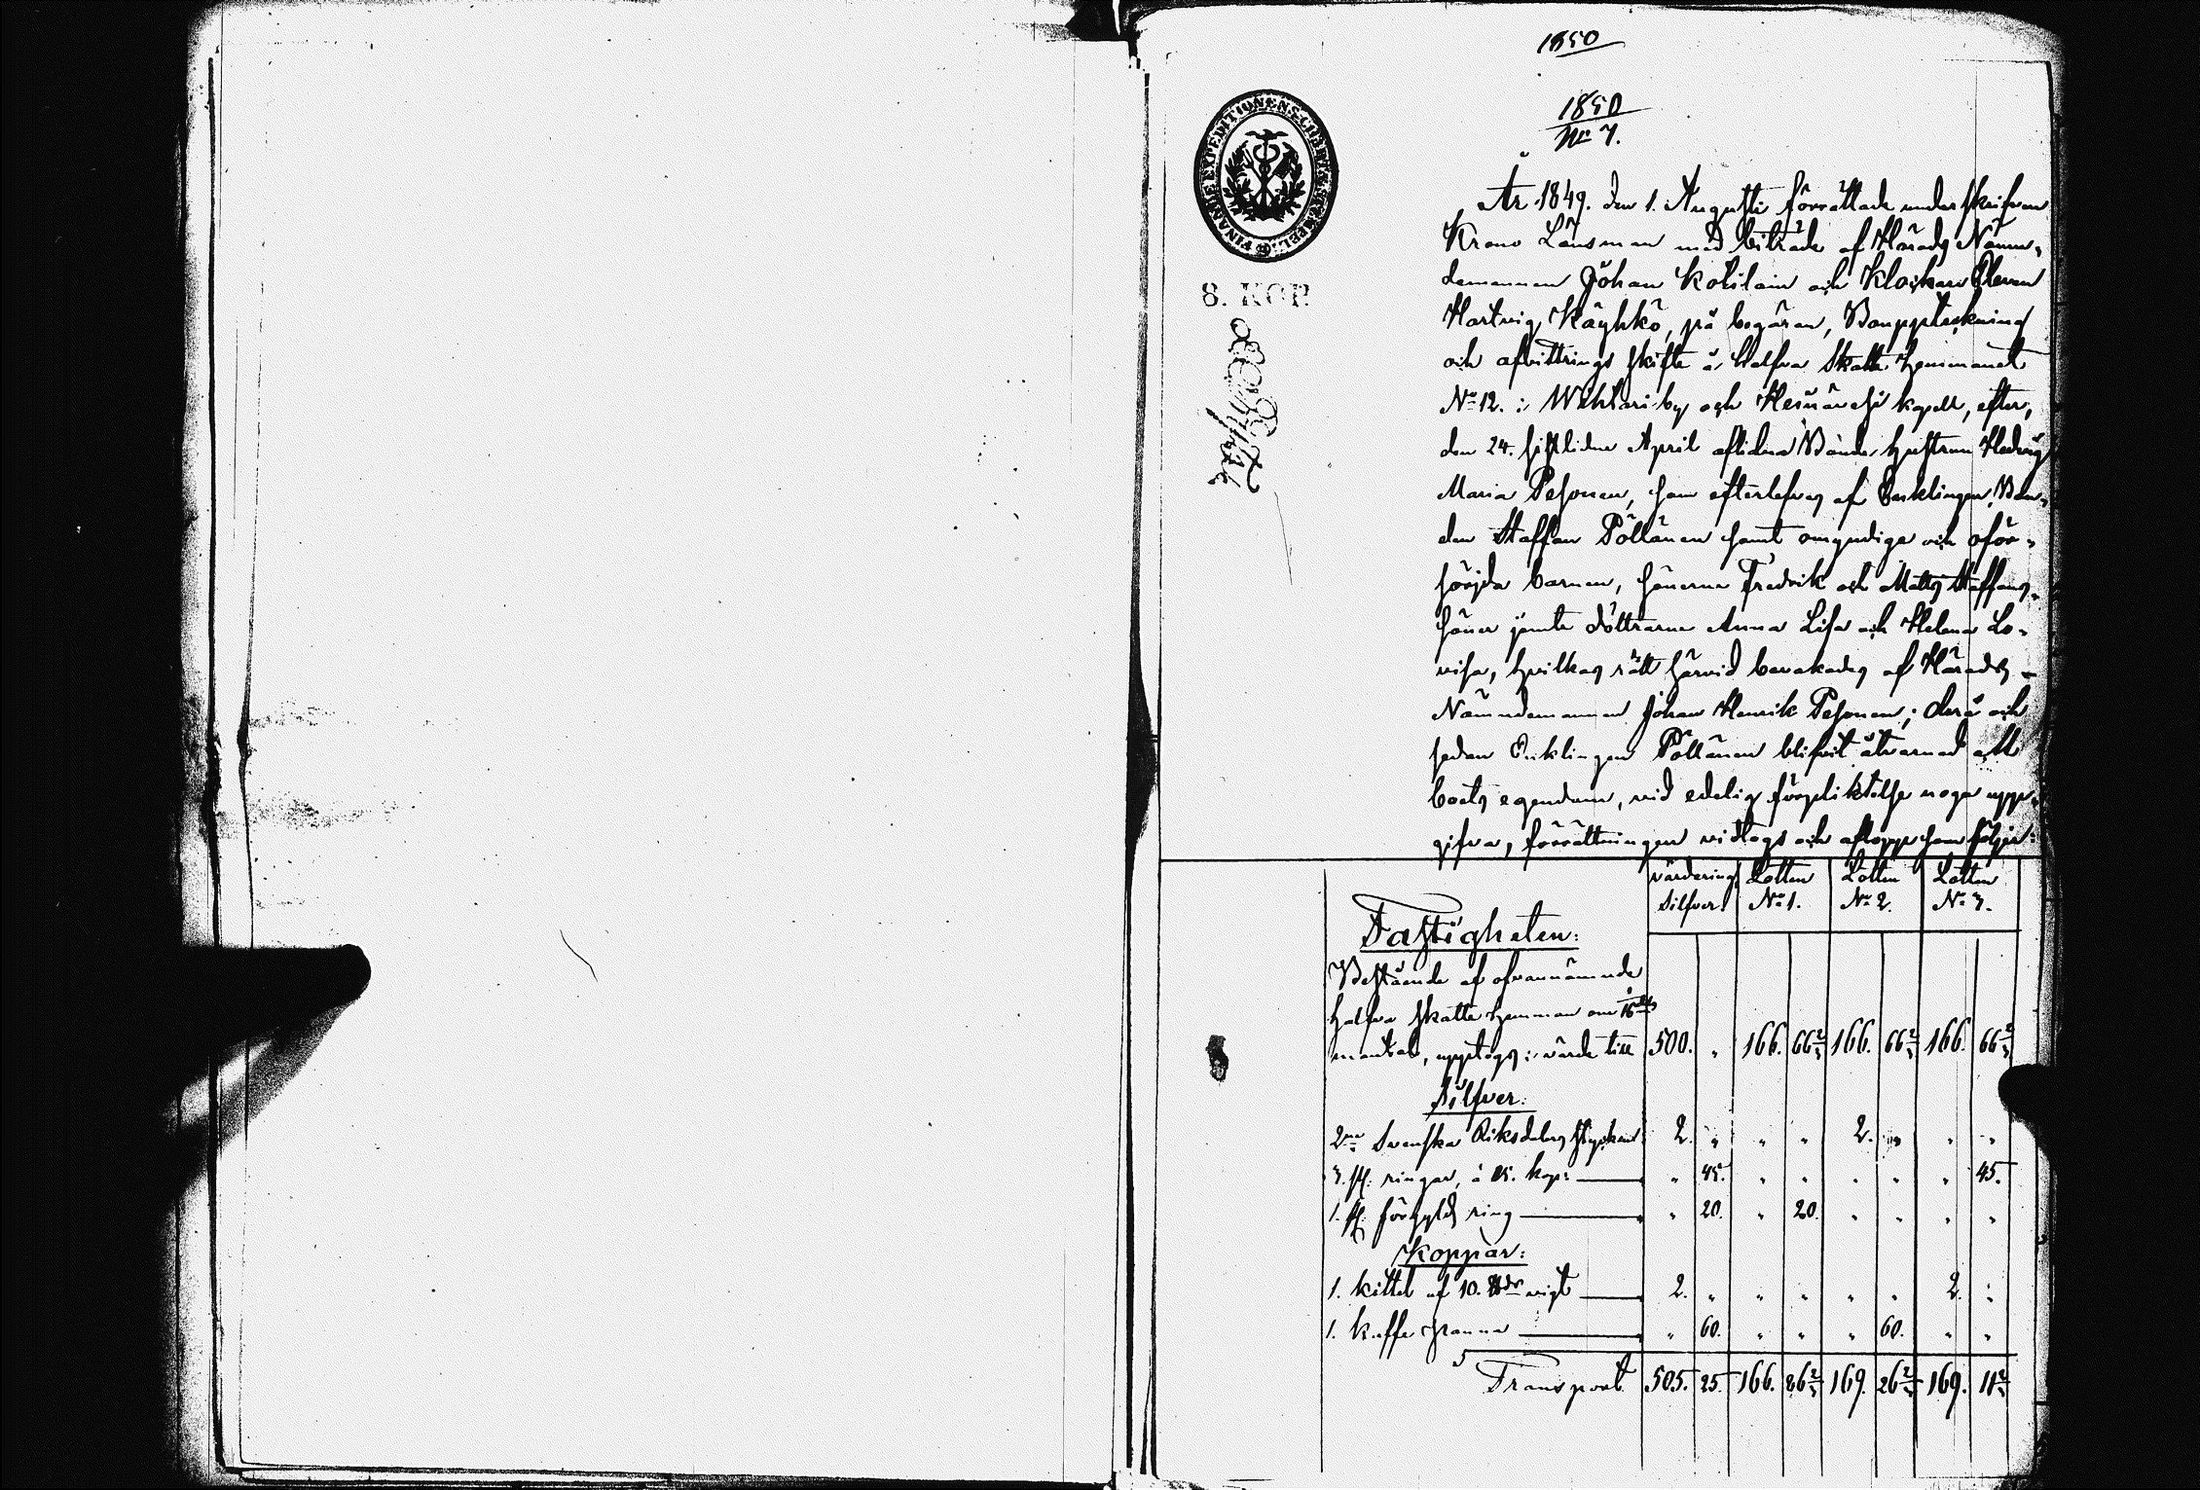 1850
1850
No 7.
FINANCE EXPEDITIONENS
8. KOP.
År 1849. den 1. Augusti förrättade underskrifven
Krono Länsman med biträde af Härads Nämn-
demannen Johan Kotilain och Klockare Eleven
Hartvig Käyhkö, på begäran, Bouppteckning
och afvittrings skifte å halfva Skatte hemmanet
No 12. i Wehkari by och Heinävesi kapell, efter,
den 24. sistlidne April aflidna Bonde hustrun Hedvig
Maria Pesonen, som efterlefves af Enklingen, Bon-
den Staffan Pöllänen samt omyndiga och oför-
sörjda barnen, sönerna Fredrik och Matts Staffans-
söner jemte döttrarne Anna Lisa och Helena Lo-
visa, hvilkas rätt härvid bevakades af Härads-
Nämndemannen Johan Henrik Pesonen; derå och
sedan Enklingen Pöllänen blifvit åtvarnad att
boets egendom, vid edelig förpliktelse noga upp-
gifva, förrättningen vidtogs och aflopp som följer:
värdering Silfver. Lotten No 1. Lotten No 2. Lotten No 3.
Fastigheten:
Bestående af ofvannämnde
halfva skatte hemman om
mantal, upptogs i värde till 500. " 166. 66 2/3 166. 66 2/3 166. 66 2/3
Silfver:
2ne Svenska Riksdalers stycken 2. " " " 2. " " "
3. st. ringar, à 15. kop: " 45. " " " " " 45.
1. st. förgyld ring " 20. " 20. " " " "
Koppar:
1. kittel af 10. vigt 2. " " " " " 2. "
1. kaffe panna " 60. " " " 60. " "
Transport 505. 25. 166. 86 2/3 169. 26 2/3 169. 11 2/3